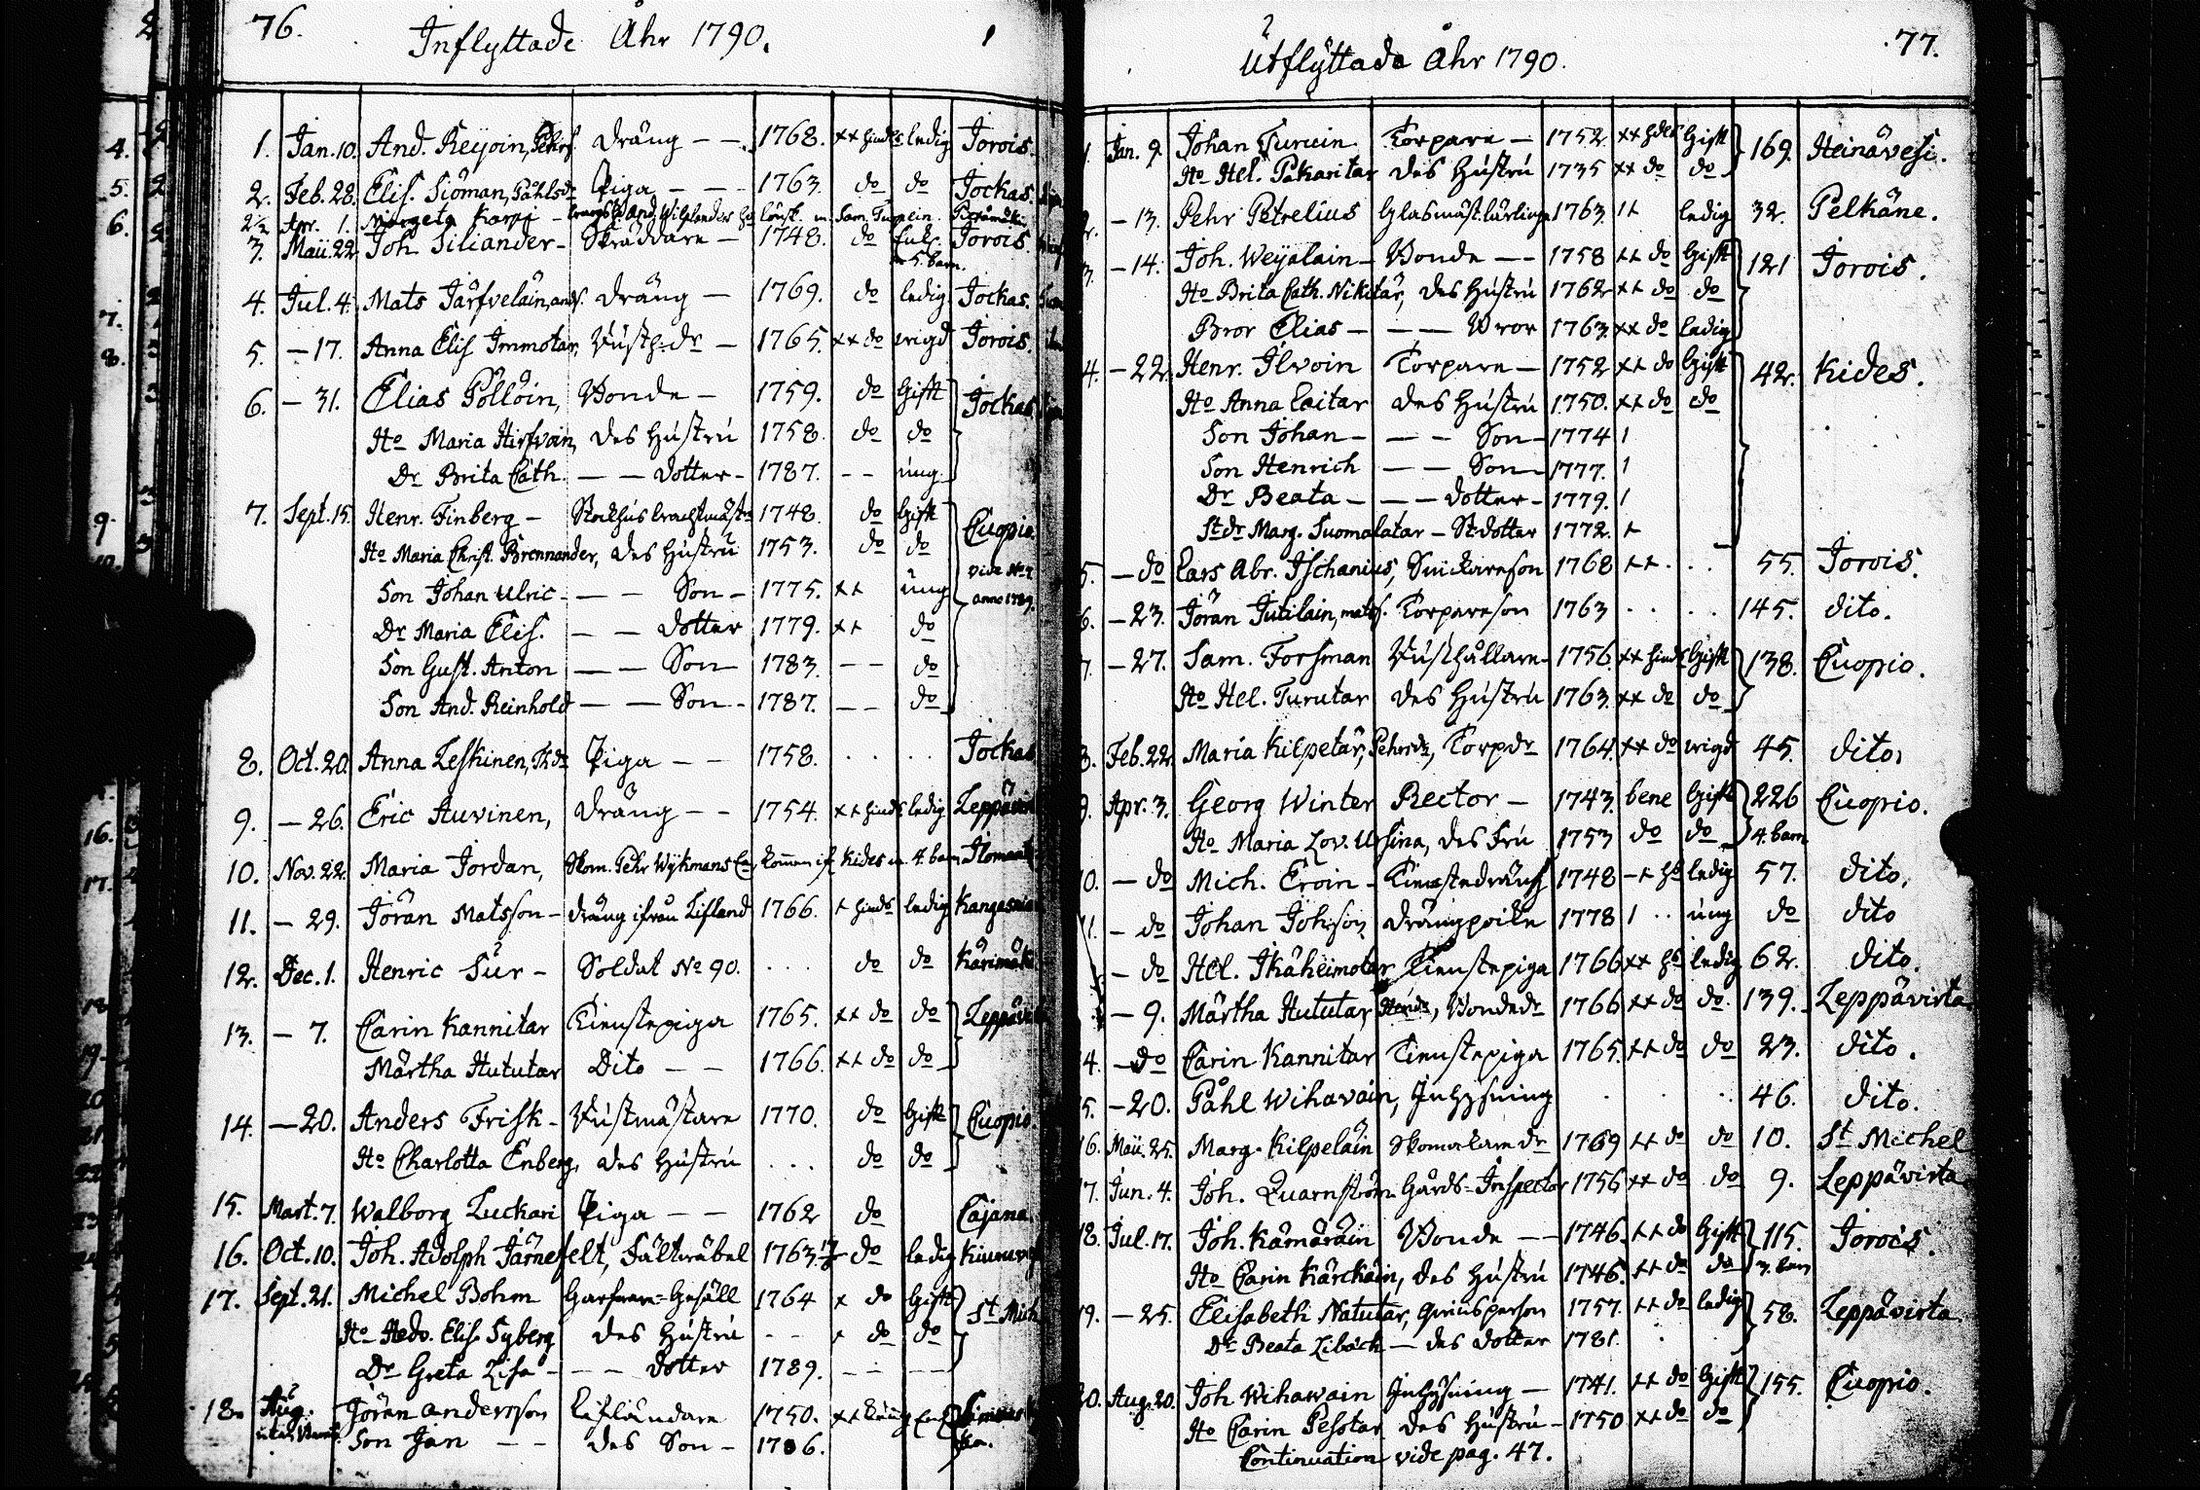 76.
Inflyttade Åhr 1790.
1. Jan. 10. And. Reijoin, Pehrs. Dräng — — 1768. ++ hinds ledig Jorois.
2. Feb. 28. Elis. Siöman, Påhlsdr Piga — — 1763. do do Jockas.
2½ Apr. 1. Margeta Karpp - And. Wiglanders Lönsk. m. Sam. Turpein.
3. Maii. 22. Joh. Siliander - Skräddare — 1748. do Enkl. Jorois.
m. 5. barn.
4. Jul. 4. Mats Järfveläin, ands. Dräng — 1769. do ledig. Jockas.
5. — 17. Anna Elis Immotar, Rusth. dr — 1765. ++ do wigd Jorois.
6. — 31. Elias Pöllöin, Bonde — 1759. do Gift Jockas
Ho Maria Hirfvoin, Des Hustru 1758. do do
Dr Brita Cath. — — Dotter - 1787. - - ung
7. Sept. 15. Henr. Finberg - Stockhus wachtmästr 1748. do Gift Cuopio.
Ho Maria Christ. Brennander, Des Hustru 1753. do do
vide No 7.
Son Johan Ulric - — — Son - 1775. ++ ung anno 1789.
Dr Maria Elis. — — Dotter 1779. ++ do
Son Gust. Anton — — Son 1783. - - do
Son And. Reinhold — — Son - 1787. - - do
8. Oct. 20. Anna Leskinen, Piga — — 1758. . . . . Jockas
9. — 26. Eric Auvinen, Dräng — — 1754. ++ hinds ledig Leppävir
10. Nov. 22. Maria Jordan, Skom. Pehr Wijkmans Ea, kommen if. Kides m. 4. barn Ilomants
11. — 29. Jöran Matsson - Dräng ifrån Lifland 1766. + hinds ledig Kangasni
12. Dec. 1. Henric Sur - Soldat No 90. . . . do do Kärimäki
13. — 7. Carin Kannitar Tienstepiga 1765. ++ do do Leppävir
Märtha Hututar Dito — — 1766. ++ do do
14. — 20. Anders Frisk - Rustmästare 1770. do Gift Cuopio.
Ho Charlotta Enberg, Des Hustru . . . do do
15. Mart. 7. Walborg Luckari Piga — — 1762 do Cajana.
16. Oct. 10. Joh. Adolph Järnefelt, Fältwäbel 1763. do ledig Kiuruves
17. Sept. 21. Michel Bohm Garfvare-Gesäll 1764 + do Gift St Mich
Ho Hedv. Elis. Syberg Des Hustru - - + do do
Dr Greta Lisa - — — Dotter 1789. - - - -
18. Aug. Jöran Andersson Lifländare 1750. ++
Son Jan — — Des Son - 1786.
77.
Utflyttade Åhr 1790.
1. Jan. 9. Johan Turuin Torpare — 1752. ++ hds Gift 169. Heinävesi.
Ho Hel. Pakaritar Des Hustru 1735 ++ do do
2. — 13. Pehr Petrelius Glasmäst. lärling 1763. 1+ ledig 32. Pelkäne.
3. — 14. Joh. Weijalain - Bonde — — 1758 ++ do Gift 121 Jorois.
Ho Brita Cath. Nikitar, Des Hustru 1762 ++ do do
Bror Elias — — — Bror 1763. ++ do ledig
4. — 22. Henr. Ilvoin Torpare — 1752 ++ do Gift 42. Kides.
Ho Anna Laitar Des Hustru 1750. ++ do do
Son Johan — — — Son - 1774 1
Son Henrich — — Son - 1777. 1
Dr Beata — — — Dotter - 1779. 1
St dr Marg. Suomalatar — St. Dotter 1772. +
5. — do Lars Abr. Ischanius, Snickareson 1768 ++ . . . 55. Jorois.
6. — 23. Jöran Jutilain, mats. Torpareson 1763 . . . . 145. dito.
7. — 27. Sam. Forsman Rusthållare 1756. ++ hinds Gift 138. Cuopio.
Ho Hel. Turutar Des Hustru 1763. ++ do do
8. Feb. 22. Maria Kilpetar, Pehrsdr, Torpdr 1764. ++ do wigd 45. dito,
9. Apr. 3. Georg Winter Rector — 1743. bene Gift 226 Cuopio.
Ho Maria Lov. Ursina, Des Fru 1753 do do 4. barn
10. — do Mich. Eroin - Tienstedräng 1748 -+ hd ledig 57. dito.
11. — do Johan Johsson Drängpoike 1778 1 . . ung do dito
— do Hel. Ikäheimotar Tienstepiga 1766 ++ hd ledig 62. dito.
— 9. Märtha Hututar, Bondedr 1766 ++ do do. 139. Leppävirta
14. — do Carin Kannitar Tienstepiga 1765. ++ do do 23. dito.
15. — 20. Påhl Wihavain, Inhysning . . . . 46. dito.
16. Maii. 25. Marg. Kilpeläin Skomakare dr 1769 ++ do do 10. St Michel
17. Jun. 4. Joh. Quarnström Gårds-Inspector 1756 ++ do do 9. Leppävirta
18. Jul. 17. Joh. Kämäräin Bonde — — 1746. ++ do Gift 115. Jorois.
Ho Carin Kärckäin, Des Hustru 1746. ++ do do 3. barn
19. — 25. Elisabeth Natutar, qvinsperson 1757. ++ do ledig 58. Leppävirta
Dr Beata Libäck — Des Dotter 1781.
20. Aug. 20. Joh. Wihawain Inhysning — 1741. ++ do Gift 155. Cuopio.
Ho Carin Pesotar Des Hustru - 1750 ++ do do
Continuation vide pag. 47.